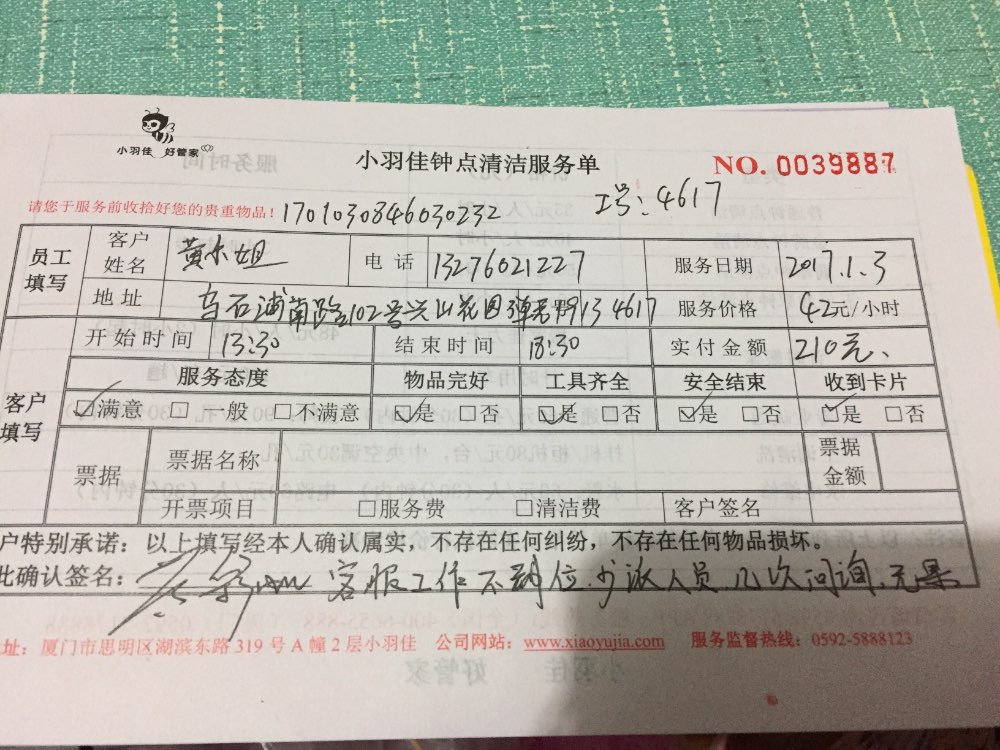 小羽佳 好管家
小羽佳钟点清洁服务单
NO. 0039887
请您于服务前收拾好您的贵重物品! 1701030846030232 工号:4617
员工填写 客户姓名 黄小姐 电话 13276021227 服务日期 2017.1.3
地址 乌石浦南路102号兴山花园 4617 服务价格 42元/小时
开始时间 13:30 结束时间 18:30 实付金额 210元
客户填写 服务态度 物品完好 工具齐全 安全结束 收到卡片
☑满意 □一般 □不满意 ☑是 □否 ☑是 □否 ☑是 □否 ☑是 □否
票据 票据名称 票据金额
开票项目 □服务费 □清洁费 客户签名
户特别承诺:以上填写经本人确认属实,不存在任何纠纷,不存在任何物品损坏。
此确认签名: 客服工作不到位,少派人员,几次问询,无果
址:厦门市思明区湖滨东路319号A幢2层小羽佳 公司网站:www.xiaoyujia.com 服务监督热线:0592-5888123